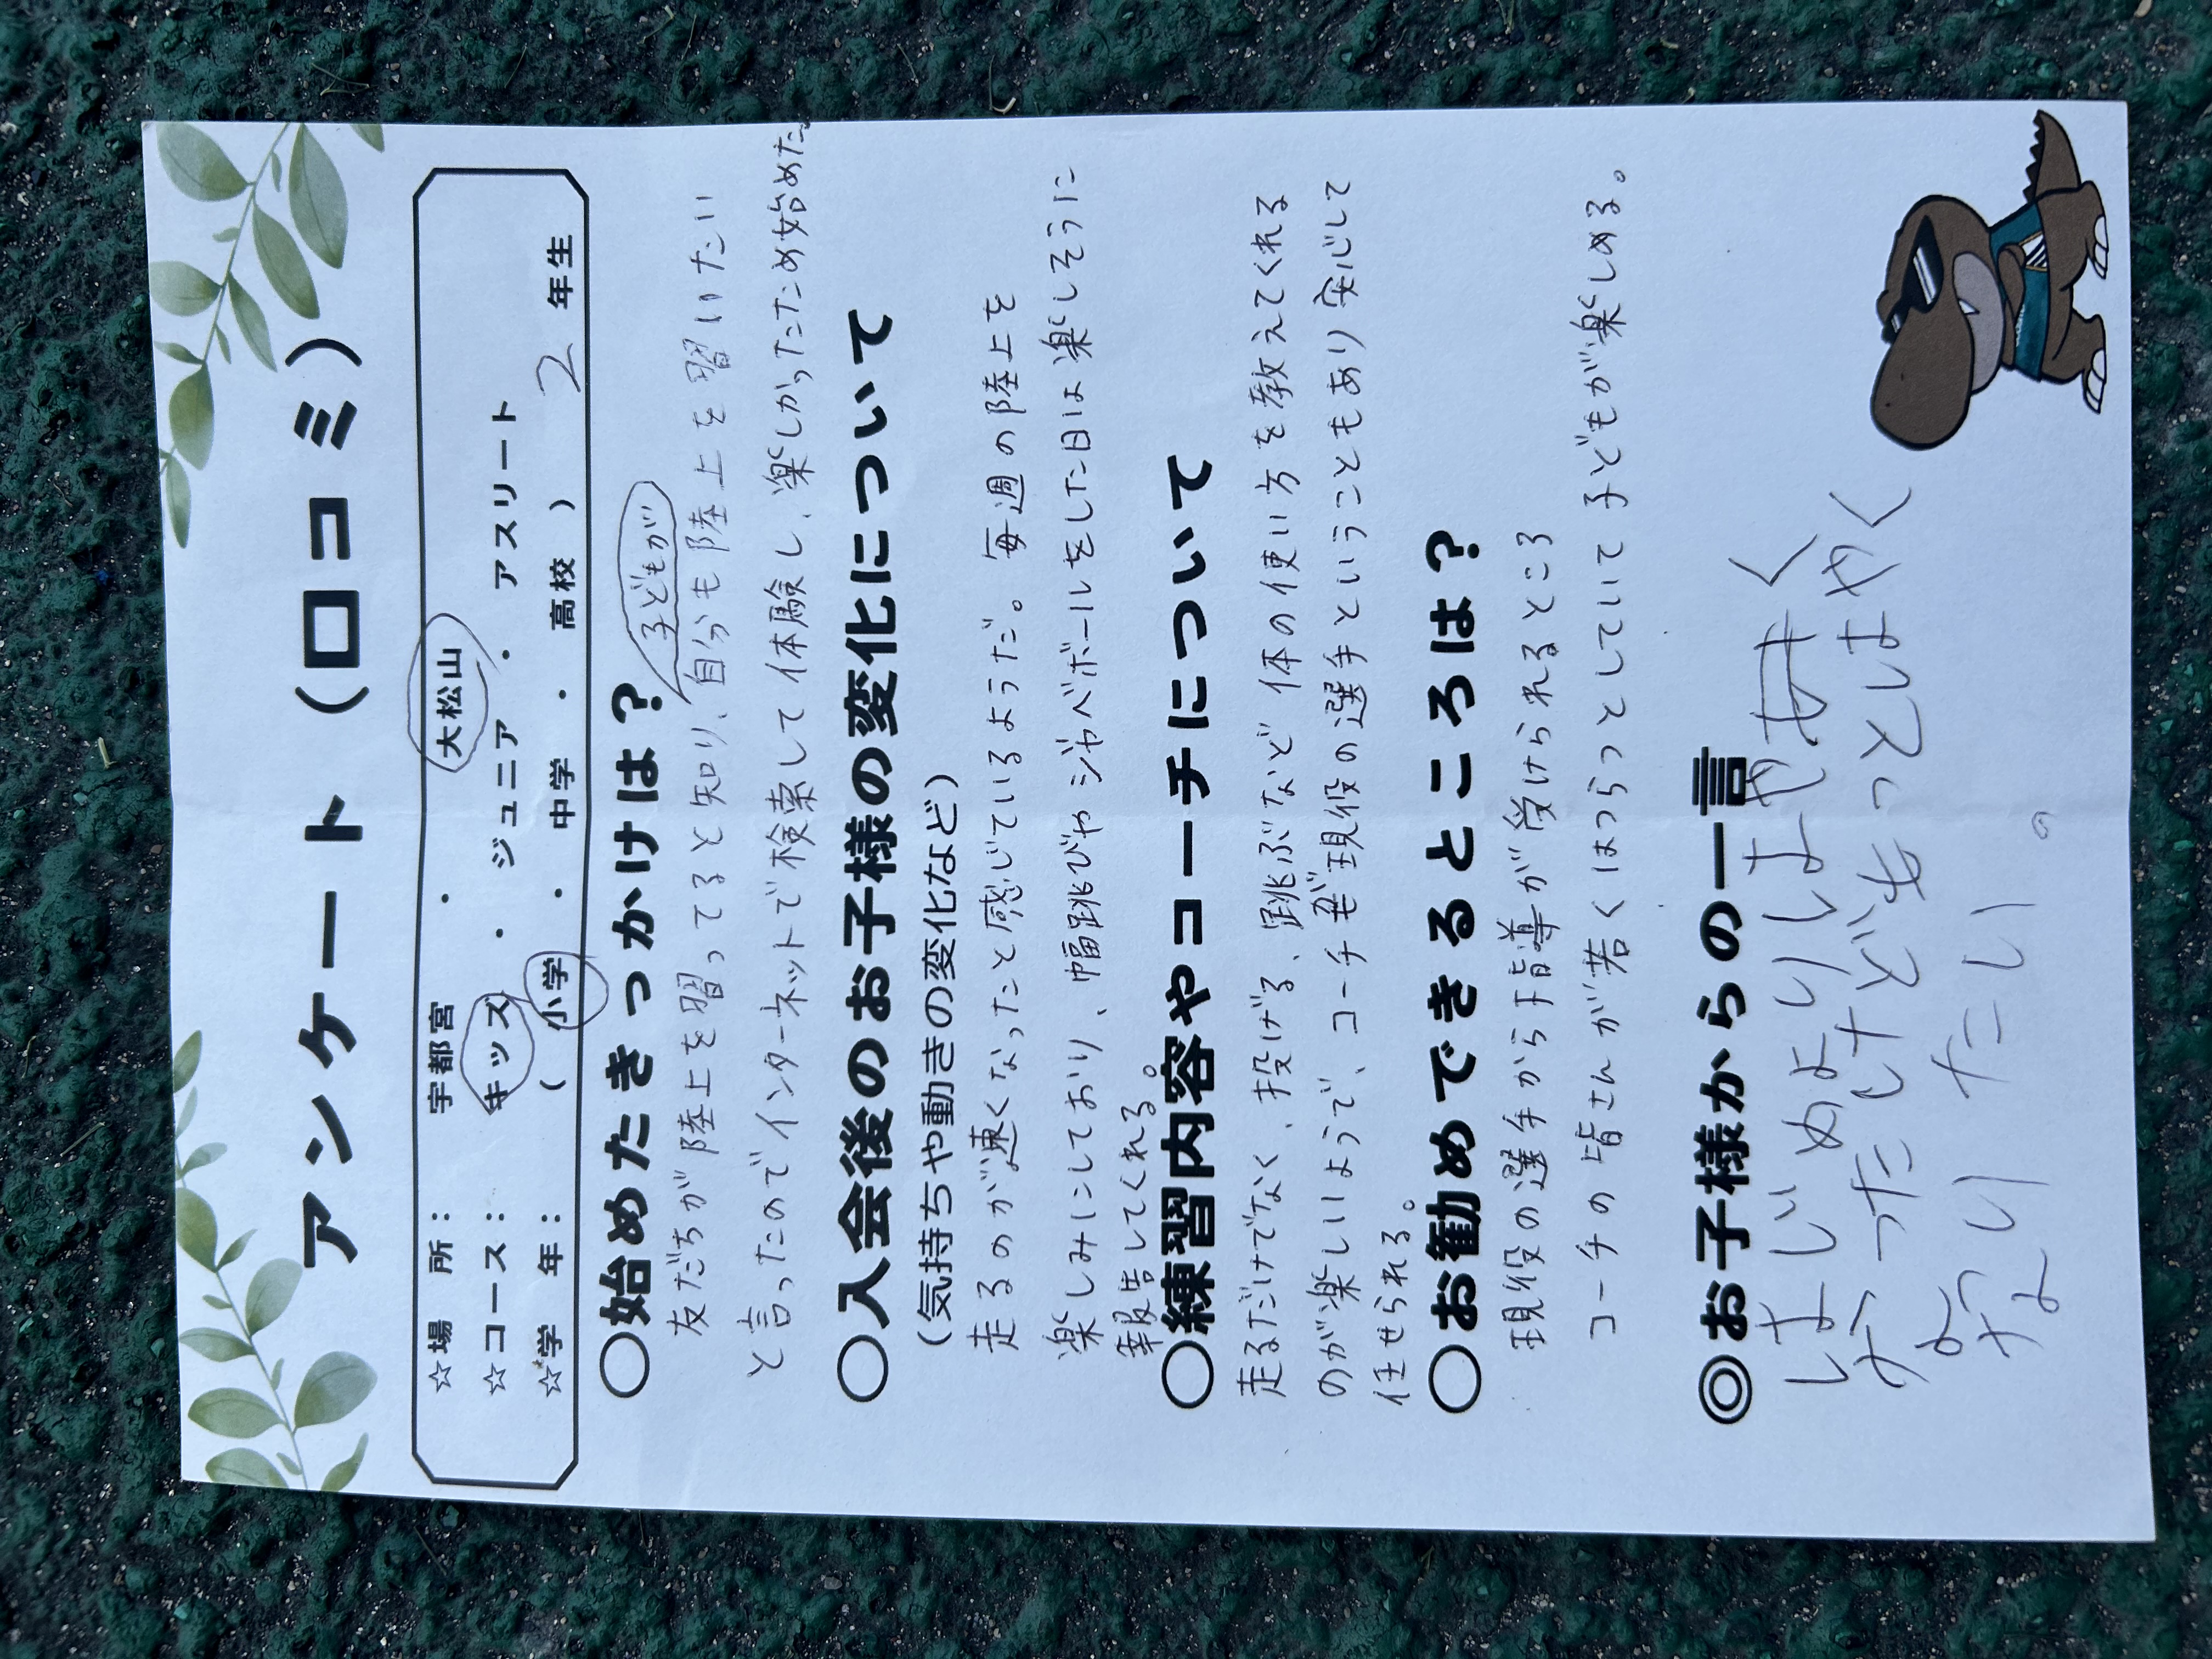 アンケート（口コミ）
☆場　所：　宇都宮　・　大松山
☆コース：　キッズ　・　ジュニア　・　アスリート
☆学　年：　（　小学　・　中学　・　高校　）　2　年生
○始めたきっかけは？
子どもが
友だちが陸上を習ってると知り、自分も陸上を習いたい
と言ったのでインターネットで検索して体験し、楽しかったため始めた。
○入会後のお子様の変化について
（気持ちや動きの変化など）
走るのが速くなったと感じているようだ。毎週の陸上を
楽しみにしており、幅跳びやジャベボールをした日は楽しそうに
報告してくれる。
○練習内容やコーチについて
走るだけでなく、投げる、跳ぶなど体の使い方を教えてくれる
のが楽しいようで、コーチが現役の選手ということもあり安心して
任せられる。
○お勧めできるところは？
現役の選手から指導が受けられるところ
コーチの皆さんが若くはつらつとしていて子どもが楽しめる。
◎お子様からの一言
はじめよりはやく
なったけどもっとはやく
なりたい